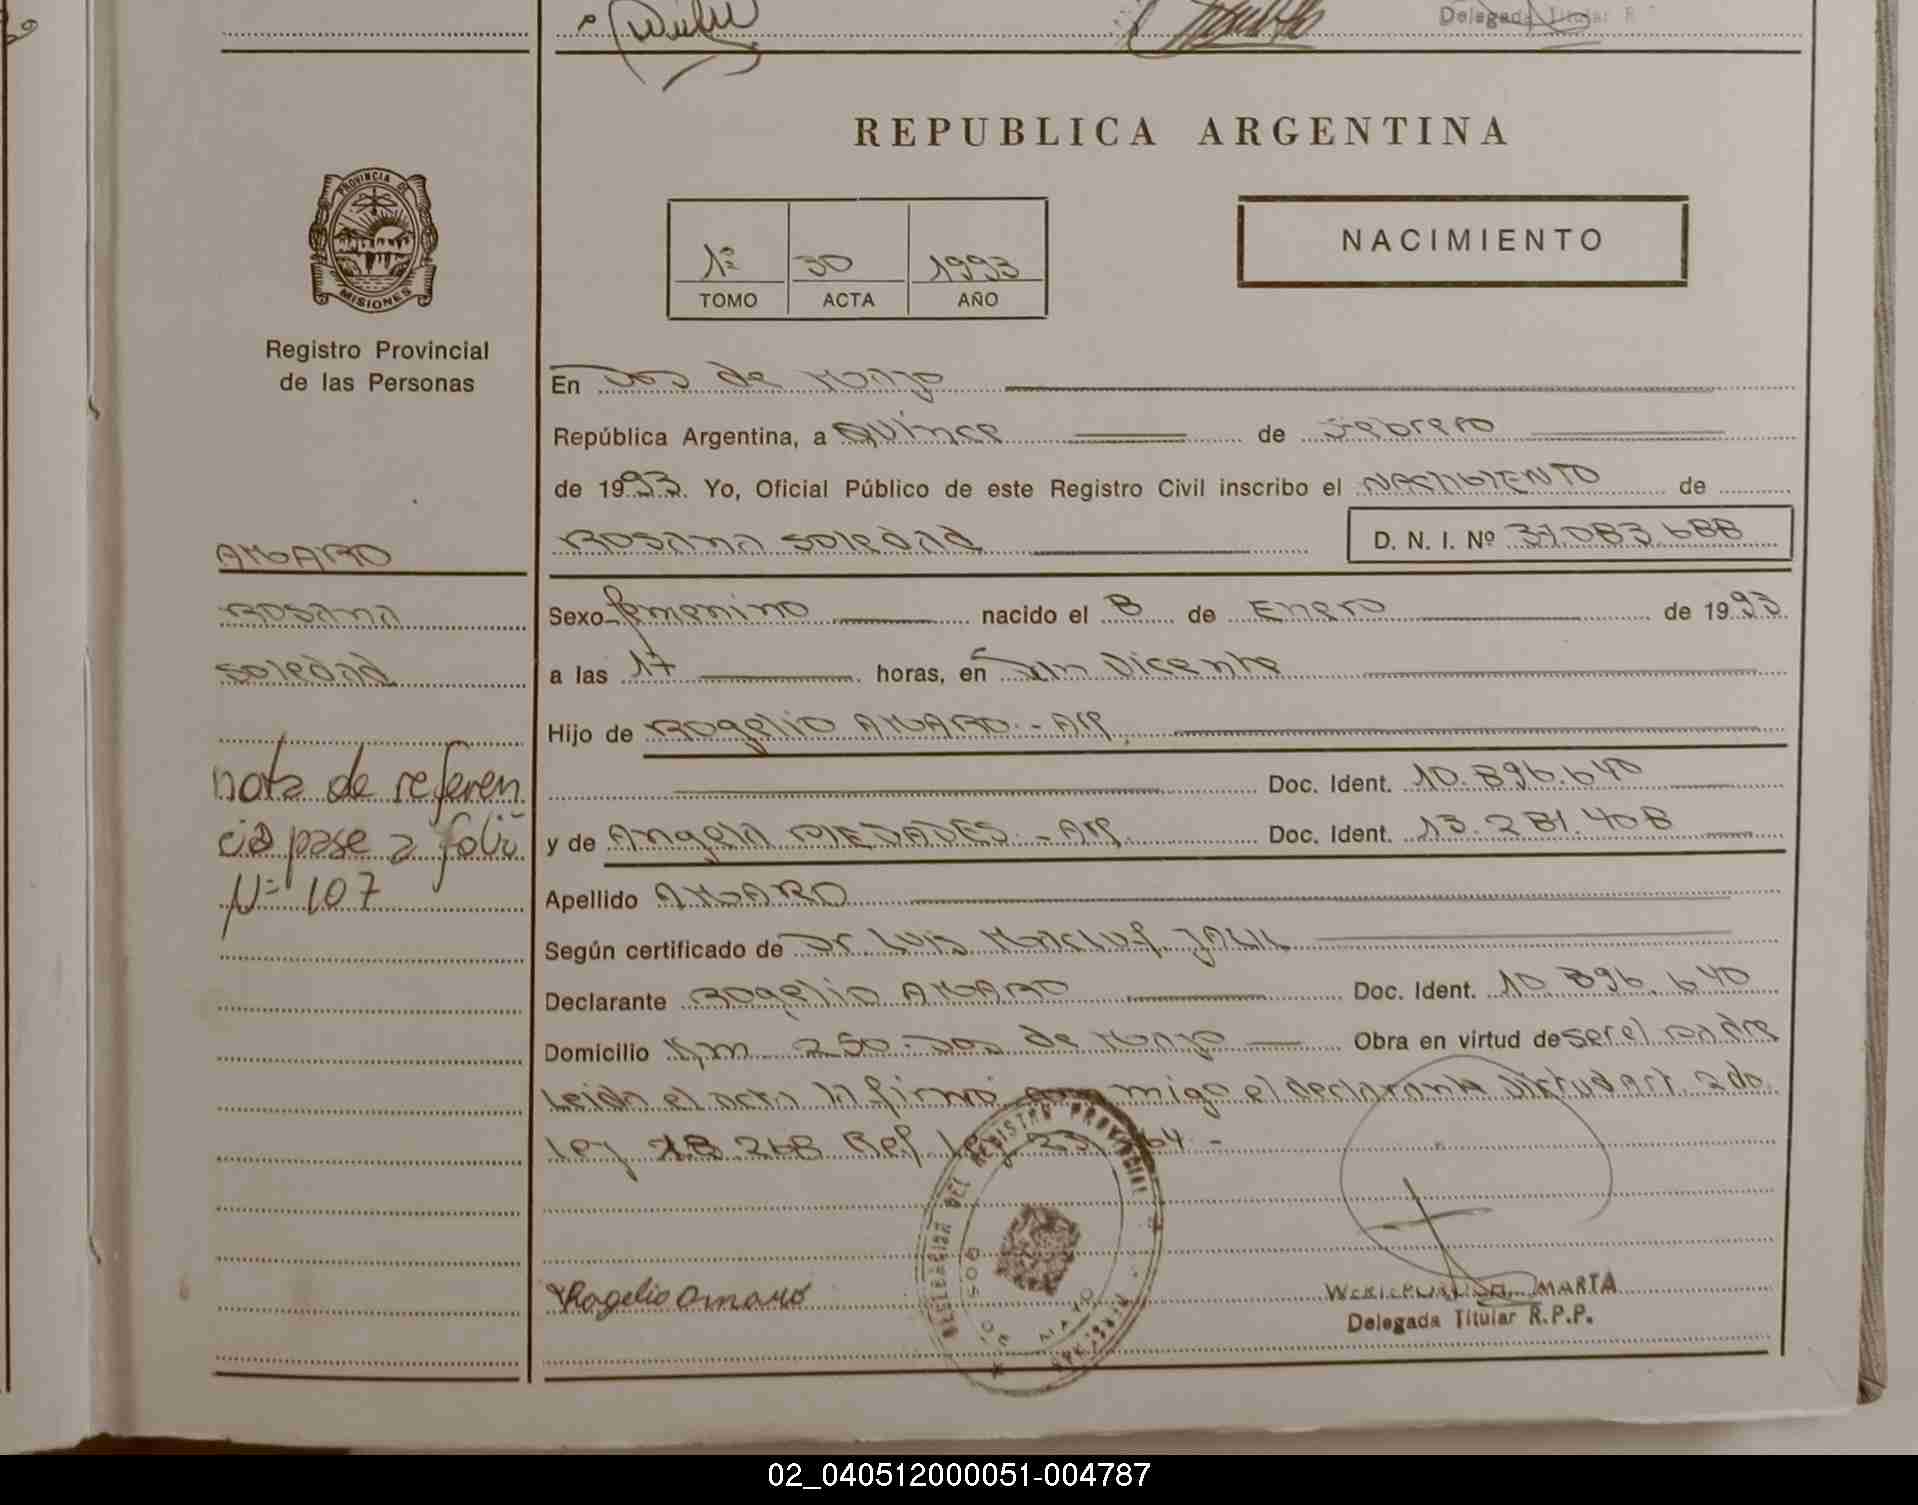 Delegada Titular R.
REPUBLICA ARGENTINA
PROVINCIA DE
MISIONES
1º 30 1993
TOMO ACTA AÑO
NACIMIENTO
Registro Provincial
de las Personas
En Dos de Mayo
República Argentina, a Quince de Febrero
de 1993. Yo, Oficial Público de este Registro Civil inscribo el NACIMIENTO de
ROSANA SOLEDAD D. N. I. Nº 37.083.688
AMARO
ROSANA
SOLEDAD
nota de referen
cia pase a folio
Nº 107
Sexo femenino nacido el 8 de Enero de 1993.
a las 17 horas, en San Vicente
Hijo de Rogelio AMARO.- Arg.
Doc. Ident. 10.896.640
y de Angela PIEDADES.- Arg. Doc. Ident. 13.281.408
Apellido AMARO
Según certificado de Dr. Luis JALIL
Declarante Rogelio AMARO Doc. Ident. 10.896.640
Domicilio Km 250. Dos de Mayo Obra en virtud de ser el padre
Leida el acta la firma conmigo el declarante virtud art. 2do.
Ley 18.268 Ref. Ley
DELEGACION DEL REGISTRO PROVINCIAL
Rogelio Amaro
MARTA
Delegada Titular R.P.P.
02_040512000051-004787